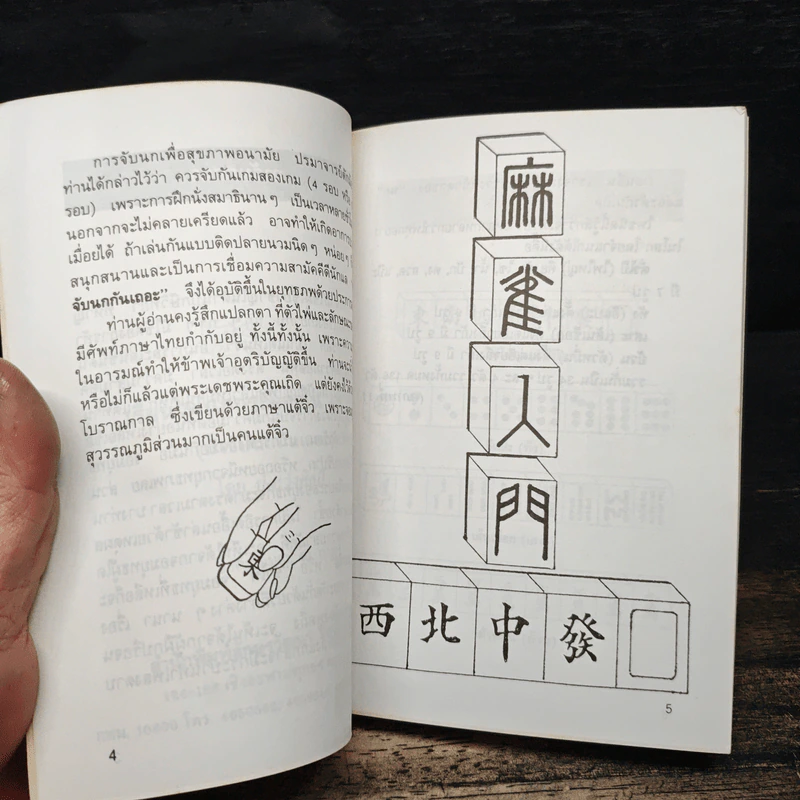 การจับนกเพื่อสุขภาพอนามัย ปรมาจารย์
ท่านได้กล่าวไว้ว่า ควรจับกันเกมสองเกม (4 รอบ
รอบ) เพราะการฝึกนั่งสมาธินานๆ เป็นเวลาหลาย
นอกจากจะไม่คลายเครียดแล้ว อาจทำให้เกิดอาการ
เมื่อยได้ ถ้าเล่นกันแบบติดปลายนวมนิดๆ หน่อยๆ
สนุกสนานและเป็นการเชื่อมความสามัคคีดีนักแล
จับนกกันเถอะ" จึงได้อุบัติขึ้นในยุทธภพด้วยประการ
ท่านผู้อ่านคงรู้สึกแปลกตา ที่ตัวไพ่และลักษณะ
มีศัพท์ภาษาไทยกำกับอยู่ ทั้งนี้ทั้งนั้น เพราะ
ในอารมณ์ทำให้ข้าพเจ้าอุตริบัญญัติขึ้น ท่าน
หรือไม่ก็แล้วแต่พระเดชพระคุณเถิด แต่ยังคง
โบราณกาล ซึ่งเขียนด้วยภาษาแต้จิ๋ว เพราะ
สุวรรณภูมิส่วนมากเป็นคนแต้จิ๋ว
4
麻
雀
入
門
西 北 中 發
5